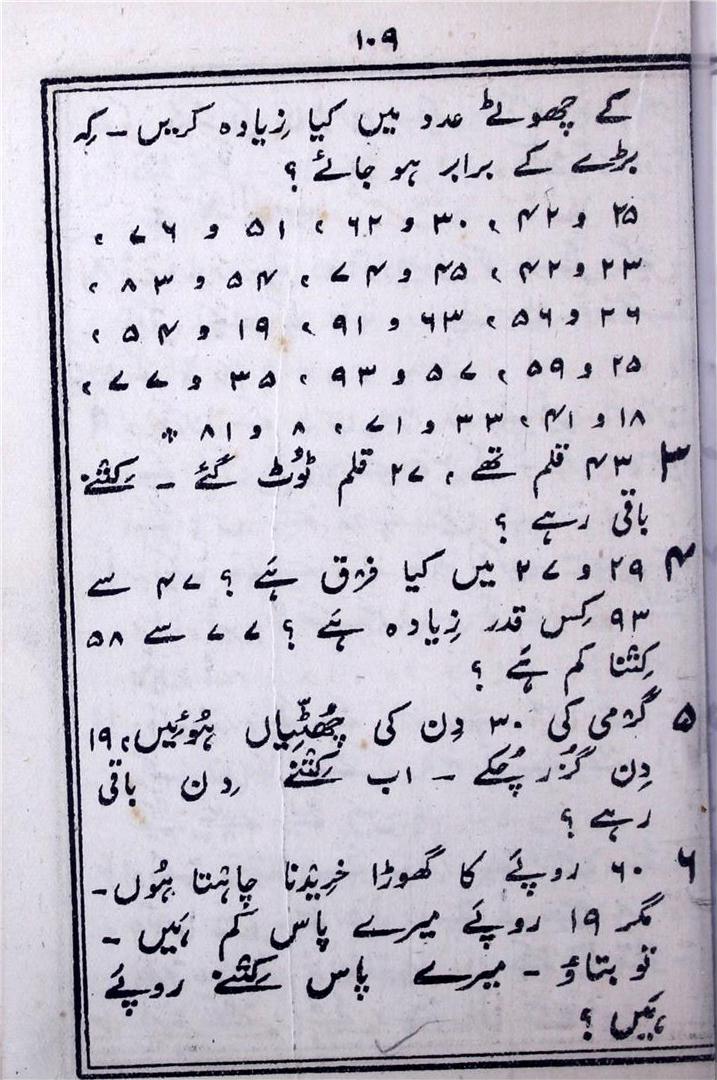 ۱۰۹
کے چھوٹے عدد میں کیا زِیادہ کریں ۔ کِہ
بڑے کے برابر ہو جائے ؟
۲۵ و ۴۲ ، ۳۰ و ۶۲ ، ۵۱ و ۷۶ ،
۲۳ و ۴۲ ، ۴۵ و ۷۴ ، ۵۴ و ۸۳ ،
۲۶ و ۵۶ ، ۶۳ و ۹۱ ، ۱۹ و ۵۴ ،
۲۵ و ۵۹ ، ۵۷ و ۹۳ ، ۳۵ و ۷۷ ،
۱۸ و ۴۱ ، ۳۳ و ۷۱ ، ۸ و ۸۱ ٭
۳ ۴۳ قلم تھے ، ۲۷ قلم ٹُوٹ گئے ۔ کِتنے
باقی رہے ؟
۴ ۲۹ و ۲۷ میں کیا فرق ہَے ؟ ۴۷ سے
۹۳ کِس قدر زِیادہ ہَے ؟ ۷۷ سے ۵۸
کِتنا کم ہَے ؟
۵ گرمی کی ۳۰ دِن کی چُھٹّیاں ہُوئِیں ، ۱۹
دِن گُزر چُکے ۔ اب کِتنے دِن باقی
رہے ؟
۶ ۶۰ روپَے کا گھوڑا خرِیدنا چاہتا ہُوں ۔
مگر ۱۹ روپَے میرے پاس کم ہَیں ۔
تو بتاؤ ۔ میرے پاس کِتنے روپَے
ہَیں ؟